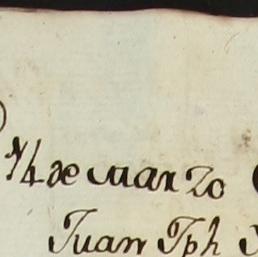 14 de Marzo
Juan Jph